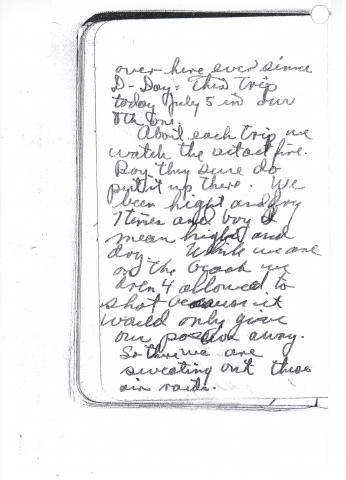 over here ever since
D-Day. This trip
today July 5 in our
8th one.
About each trip we
watch the actact fire.
Boy they sure do
put it up there. We
been hight and dry
7 times and boy I
mean hight and
dry. While we are
on the beach we
aren't allowed to
shot because it
would only give
our position away.
So there we are
sweating out these
air raids.